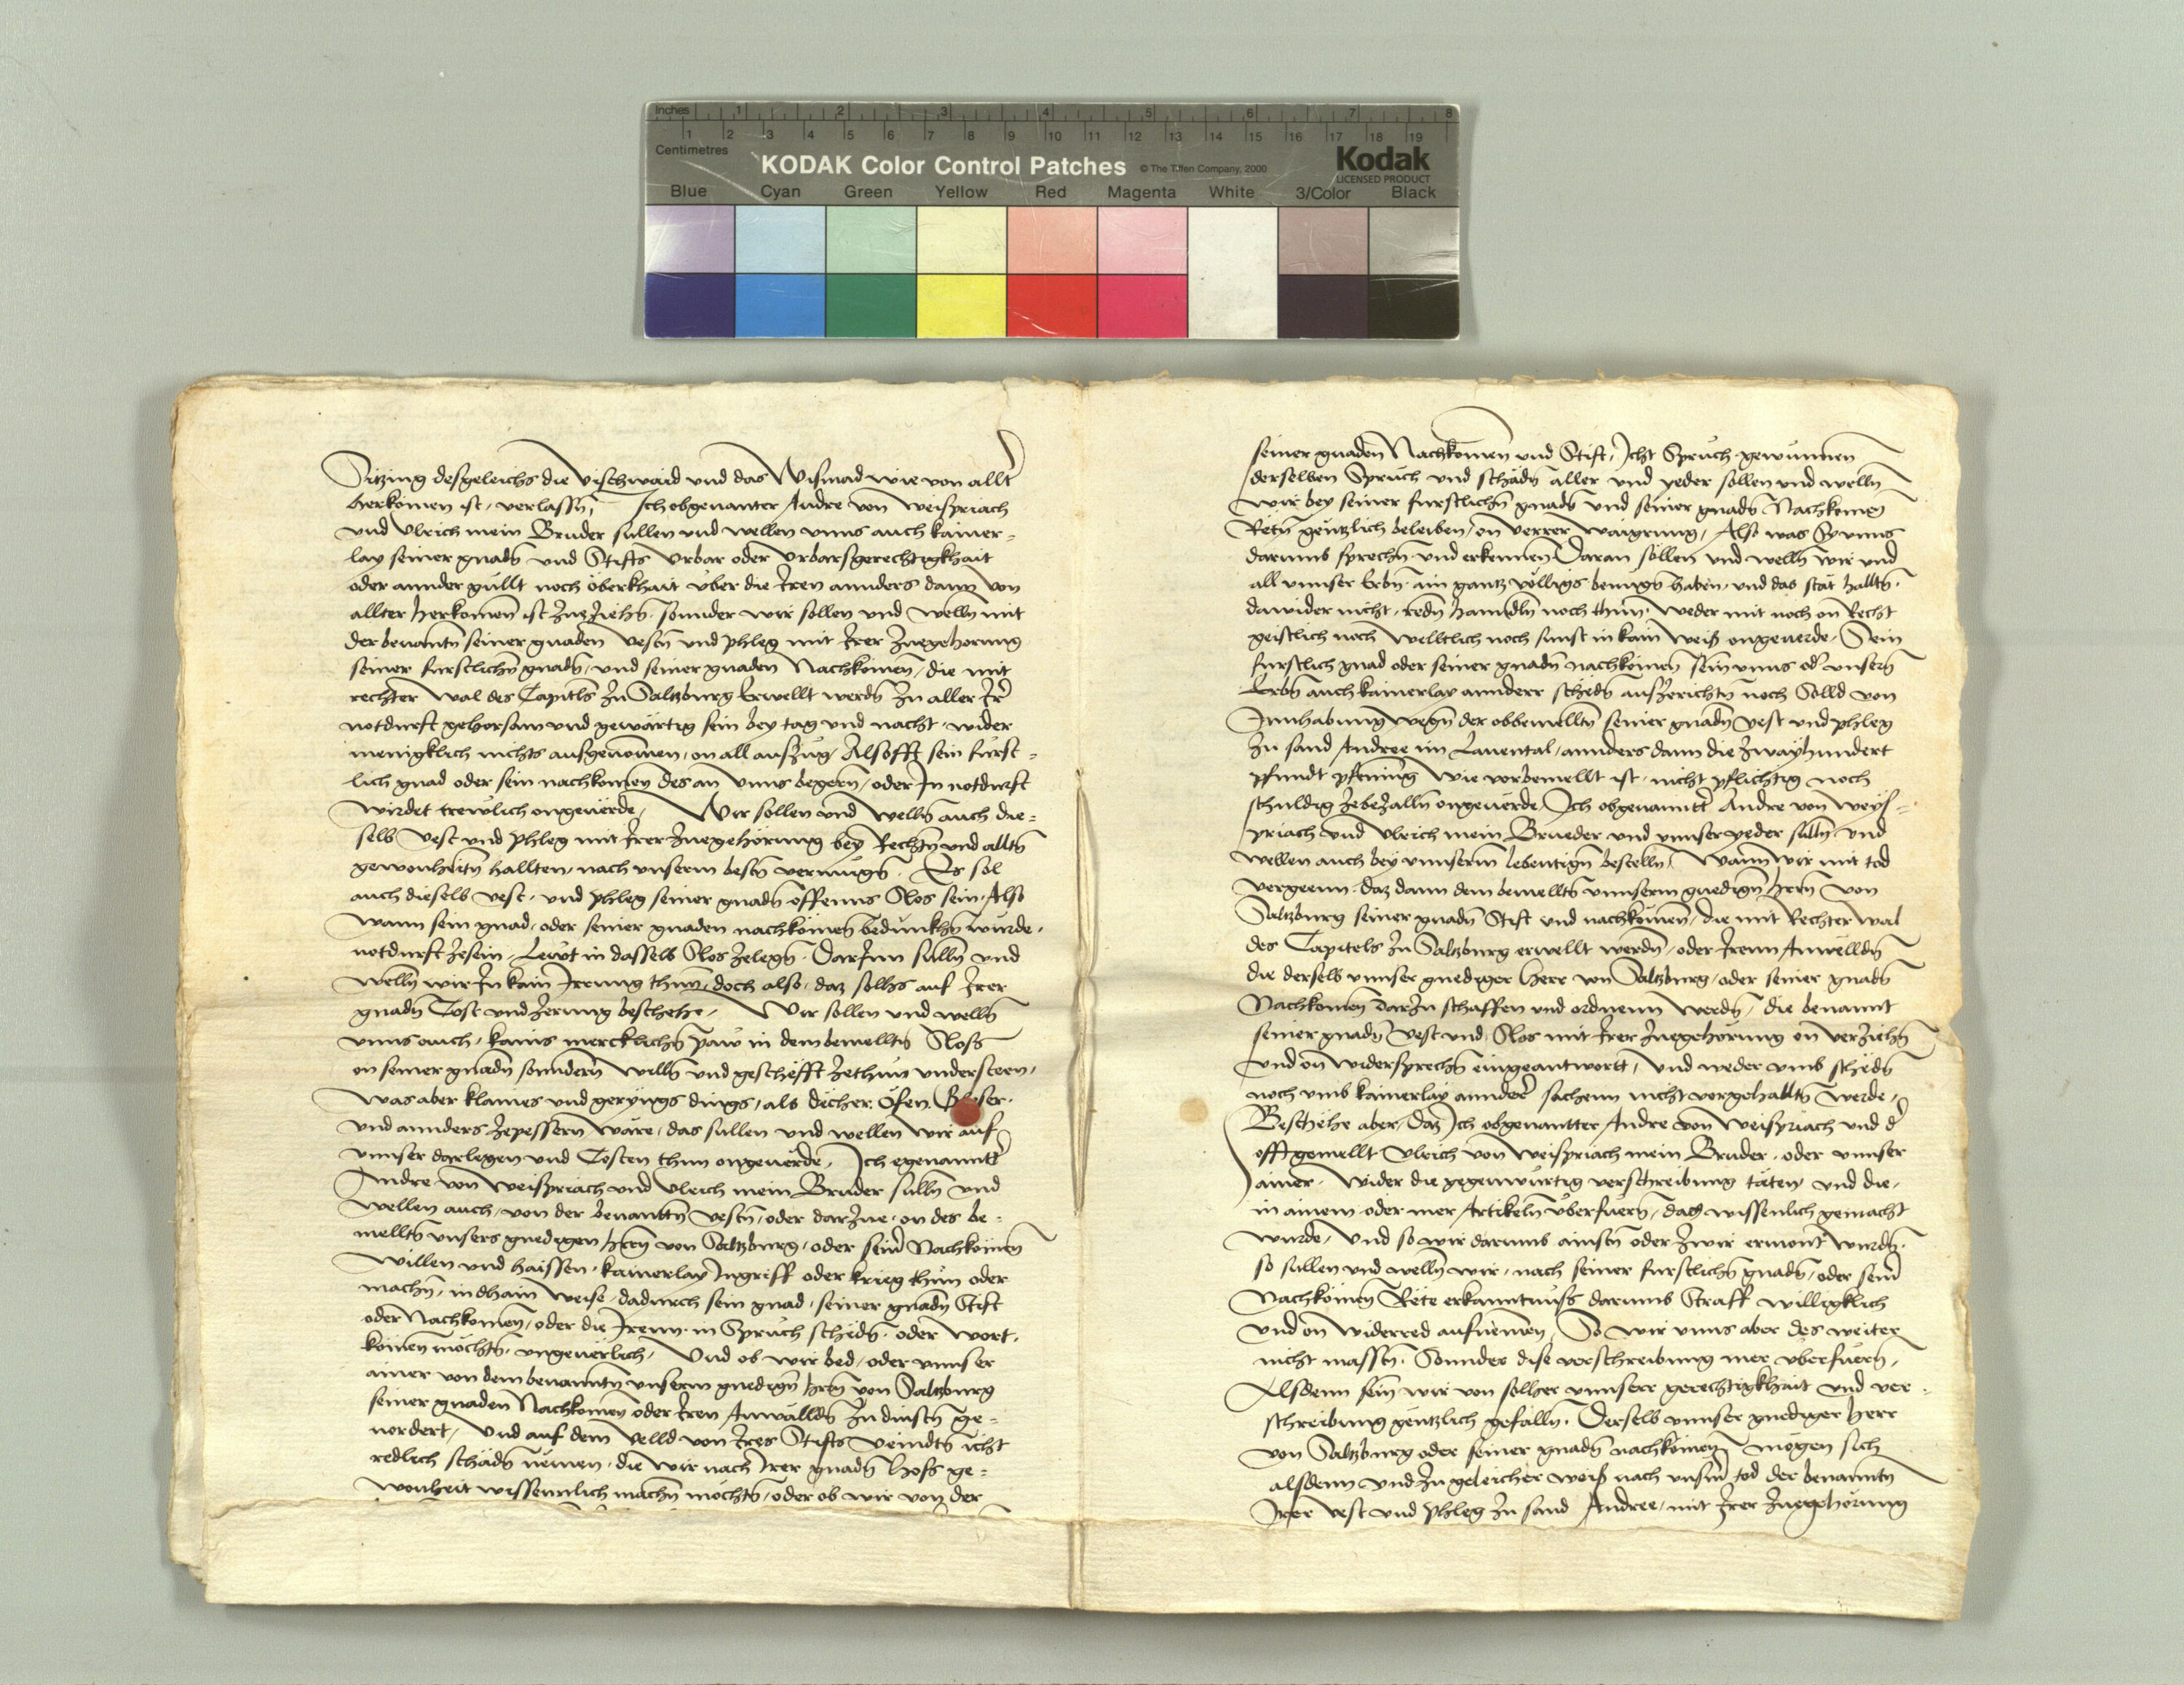 Inches 1 2 3 4 5 6 7 8
1 2 3 4 5 6 7 8 9 10 11 12 13 14 15 16 17 18 19
Centimetres
KODAK Color Control Patches © The Tiffen Company, 2000 Kodak
LICENSED PRODUCT
Blue Cyan Green Yellow Red Magenta White 3/Color Black
Sitzing desgeleichs die Vischwaid und das Wismad wie von allt̃
herkomen ist, verlassn̄, Ich obgenanter Andre von Weispriach
und Vlrich mein Bruder sullen und wellen vnns auch kainer-
lay seiner gnadn̄ und Stifts vrbar oder vrbarsgerechtigkhait
oder annder gullt noch öberkhait über die Iren annders dann von
allter herkomen ist Zueziehn̄. sonnder wir sollen und welln̄ mit
der benantn̄ seiner gnaden vestn̄ und phleg mit Irer Zuegehorung
seiner furstlichn̄ gnadn̄, und seiner gnaden Nachkomen, die mit
rechter wal des Capitls Zu Saltzburg Erwellt werdn̄ Zu aller Ir̃
notdurft gehorsam und gewärtig sein bey tag und nacht. wider
menigklich nichts ausgenomen, on all auszug, Alsofft sein furst-
lich gnad oder sein nachkomen des an vnns begern̄, oder In notdurft
wirdet trewlich ongeuërde, Wir sollen und welln̄ auch die-
selb vest und phleg mit Irer Zuegehörung bey Rechtn̄ und alltn̄
gewonheitn̄ hallten, nach unserm bestn̄ vermugn̄. Es sol
auch dieselb vest, und phleg seiner gnadn̄ offenns Slos sein. Also
wann sein gnad, oder seiner gnaden nachkömen bedunkhn̄ wurde,
notdurft Zesein, Lewt in dasselb Slos Zelegn̄. DarInn sulln̄ und
welln̄ wir In kain Irrung thun, doch also, daz solhs auf Irer
gnadn̄ Cost und Zerung beschehe, Wir sollen und welln̄
vnns auch, kains mercklichn̄ paw in dem bemelltn̄ Sloss
on seiner gnadn̄ sonndern̄ willn̄ und geschëfft Zethun understeen,
Was aber klaines und gerÿngs dings, als dächer. Öfen.
und annders Zepessern̄ wäre, das sullen und wellen wir auf
vnnser darlegen und Costen thun ongeuërde, Ich egenanntt̃
Andre von Weispriach und Vlrich mein Bruder sulln̄ und
wellen auch, von der benanttn̄ vestn̄, oder darZue, on des be-
melltn̄ unsers gnedigen hern̄ von Saltzburg, oder seinr̃ Nachkömen
willen und haissen, kainerlay Angriff oder krieg thun oder
machn̄, in dhain weise, dadurch sein gnad, seiner gnadn̄ Stift
oder Nachkomen, oder die Irenn. in Spruch schedn̄. oder wort,
kömen möchtn̄, ongeuerlich, Und ob wir bed, oder vnnser
ainer von dem benanntn̄ vnnserm gnedign̄ hrn̄ von Saltzburg
seiner gnaden Nachkomen oder Iren Anwälldn̄ Zu dinstn̄ ge-
uordert, und auf dem Velld von Ires Stifts veindtn̄ icht
redlich schädn̄ nëmen, die wir nach Irer gnadn̄ hofs ge-
wonheit wissenntlich machn̄ mochtn̄, oder ob wir von der
seiner gnaden Nachkomen und Stift, Icht Spruch gewunnen
derselben Spruch und schädn̄ aller und yeder sollen und welln̄
wir bey seiner furstlichn̄ gnadn̄ und seiner gnadn̄ Nachkomen
Retn̄ gentzlich beleiben, on verrer waigrung, Also was Sy vnns
darumb sprechn̄ und erkennen Daran sollen und welln̄ wir und
all vnnser Erbn̄. ain gantz völligs benuegn̄ haben, und das stät halltn̄.
dawider nicht, redn̄ hanndln̄ noch thun. weder mit noch on Recht
geistlich noch welltlich noch sunst in kain weiß ongeuerde, Sein
furstlich gnad oder seiner gnadn̄ nachkömen sein vnns od̃ unsern̄
Erbn̄ auch kainerlay annderr schedn̄ auszerichtn̄ noch Solld von
Innhabung wegn̄ der obbemelltn̄ seiner gnadn̄ vest und phleg
Zu sand Andree im Lauental, annders dann die Zwayhundert
pfundt pfening wie vorbemellt ist, nicht pflichtig noch
schuldig Zebezalln̄ ongeuërde, Ich obgenanntt̃ Andre von Weys-
priach und Vlrich mein Brueder und vnnser yeder sulln̄ und
wellen auch bey vnnserm lebentign̄ bestelln̄, Wann wir mit tod
vergeenn, daz dann dem bemelltn̄ vnnserm gnedign̄ hrrn̄ von
Saltzburg seiner gnadn̄ Stift und nachkömen, die mit Rechter wal
des Capitels Zu Saltzburg erwellt werdn̄, oder Irenn Anwelldn̄
die derselb vnnser gnediger herr von Saltzburg, oder seiner gnadn̄
Nachkomen darZu schaffen und ordnenn werdn̄, die benannt
seiner gnadn̄ vest und Slos mit Irer Zuegehorung on verZiehn̄
und on widersprechn̄ eingeantwort, und weder umb schëdn̄
noch umb kainerlay annderr̃ sachenn nicht vorgehalltn̄ werde,
Beschëhe aber, daz Ich obgenantter Andre von Weispriach und d̃
offtgemellt Vlrich von Weispriach mein Bruder, oder vnnser
ainer, Wider die gegenwurtig verschreibung täten, und die,
in ainem oder mer Artikeln̄ überfuern̄, daz wissenlich gemacht
wurde, und so wir darumb ainstn̄ oder Zwir ermont wurdn̄.
so sullen und welln̄ wir, nach seiner furstlichn̄ gnadn̄, oder seinr̃
Nachkömen Räte erkanntnuss darumb Straff willigklich
und on widerred aufnemen, So wir vnns aber des weiter
nicht massten. Sonnder dise verschreibung mer überfuern̄,
Alsdenn sein wir von solher vnnserr gerechtigkhait und ver-
schreibung gëntzlich gefalln̄. Derselb vnnser gnediger herr
von Saltzburg oder seiner gnadn̄ nachkömen mögen sich
alsdenn und Zu geleicher weiß nach unsm̃ tod der benanntn̄
Irer vest und phleg Zu sand Andree, mit Irer Zuegehörung